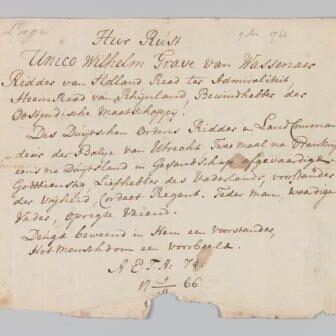 Lage
9 Nov 1766
Hier Rust
Unico Wilhelm Grave van Wassenaer
Ridder van Holland Raad ter Admiraliteit
HeemRaad van Rhijnland, Bewindhebber der
Oostindische Maatschappij.
Des Duijtschen Ordens Ridder en Land Comman
=deur der Balije van Utrecht. Twee maal na Vrankrijk
eens na Duijtsland in Gesantschap afgevaardigd.
Godtdienstig Liefhebber des Vaderlands, voorstander
der vrijheid, Cordaet Regent. Teder man, waardig
Vader, opregte Vriend.
Deugd beweend in Hem een voorstander,
Het menschdom een voorbeeld.
AETA: 74.
17 9/11 66